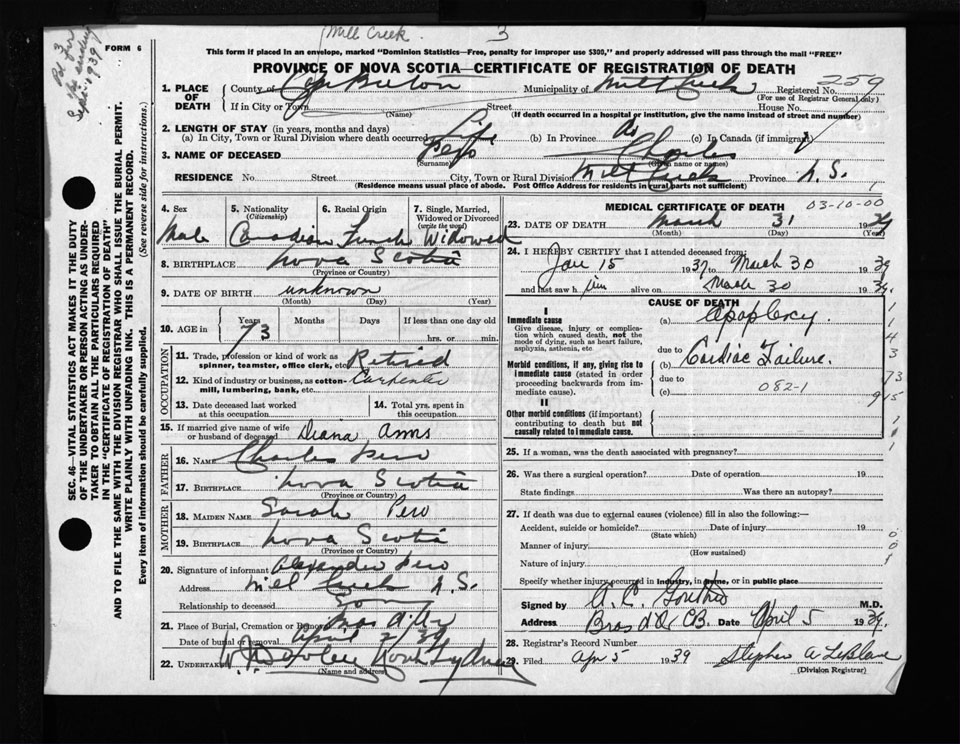 Mill Creek 3
FORM 6
This form if placed in an envelope, marked "Dominion Statistics—Free, penalty for improper use $300," and properly addressed will pass through the mail "FREE"
PROVINCE OF NOVA SCOTIA—CERTIFICATE OF REGISTRATION OF DEATH
1. PLACE OF DEATH County of Cape Breton Municipality of Mill Creek Registered No. 259
(For use of Registrar General only)
If in City or Town (Name) Street House No.
(If death occurred in a hospital or institution, give the name instead of street and number)
2. LENGTH OF STAY (in years, months and days)
(a) In City, Town or Rural Division where death occurred Life (b) In Province do (c) In Canada (if immigrant)
3. NAME OF DECEASED Pero Charles
(Surname) (Given name or names)
RESIDENCE No. Street City, Town or Rural Division Mill Creek Province N.S.
(Residence means usual place of abode. Post Office Address for residents in rural parts not sufficient)
4. Sex 5. Nationality (Citizenship) 6. Racial Origin 7. Single, Married, Widowed or Divorced (write the word)
Male Canadian French Widowed
8. BIRTHPLACE Nova Scotia
(Province or Country)
9. DATE OF BIRTH unknown
(Month) (Day) (Year)
10. AGE in Years Months Days If less than one day old
73 hrs. or min.
OCCUPATION
11. Trade, profession or kind of work as spinner, teamster, office clerk, etc. Retired
12. Kind of industry or business, as cotton-mill, lumbering, bank, etc. Carpenter
13. Date deceased last worked at this occupation 14. Total yrs. spent in this occupation
15. If married give name of wife or husband of deceased Diana Anns
FATHER
16. NAME Charles Pero
17. BIRTHPLACE Nova Scotia
(Province or Country)
MOTHER
18. MAIDEN NAME Sarah Pero
19. BIRTHPLACE Nova Scotia
(Province or Country)
20. Signature of informant Alexander Pero
Address Mill Creek N.S.
Relationship to deceased Son
21. Place of Burial, Cremation or Removal
Date of burial or removal April 2/39
22. UNDERTAKER North Sydney
(Name and address)
MEDICAL CERTIFICATE OF DEATH 03-10-00
23. DATE OF DEATH March 31 1939
(Month) (Day) (Year)
24. I HEREBY CERTIFY that I attended deceased from:
Jan 15 1937 to March 30 1939
and last saw him alive on March 30 1939.
CAUSE OF DEATH
I
Immediate cause (a) Apoplexy.
Give disease, injury or complication which caused death, not the mode of dying, such as heart failure, asphyxia, asthenia, etc.
due to
Morbid conditions, if any, giving rise to immediate cause (stated in order proceeding backwards from immediate cause). (b) Cardiac Failure.
due to
(c) 082-1
II
Other morbid conditions (if important) contributing to death but not causally related to immediate cause.
25. If a woman, was the death associated with pregnancy?
26. Was there a surgical operation? Date of operation 19
State findings Was there an autopsy?
27. If death was due to external causes (violence) fill in also the following:—
Accident, suicide or homicide? Date of injury 19
(State which)
Manner of injury
(How sustained)
Nature of injury
Specify whether injury occurred in industry, in home, or in public place
Signed by M.D.
Address Bras d'Or C.B. Date April 5 1939.
28. Registrar's Record Number
29. Filed Apr 5 1939 Stephen A LeBlanc
(Division Registrar)
SEC. 46—VITAL STATISTICS ACT MAKES IT THE DUTY OF THE UNDERTAKER OR PERSON ACTING AS UNDERTAKER TO OBTAIN ALL THE PARTICULARS REQUIRED IN THE "CERTIFICATE OF REGISTRATION OF DEATH" AND TO FILE THE SAME WITH THE DIVISION REGISTRAR WHO SHALL ISSUE THE BURIAL PERMIT.
WRITE PLAINLY WITH UNFADING INK. THIS IS A PERMANENT RECORD.
Every item of information should be carefully supplied. (See reverse side for instructions.)